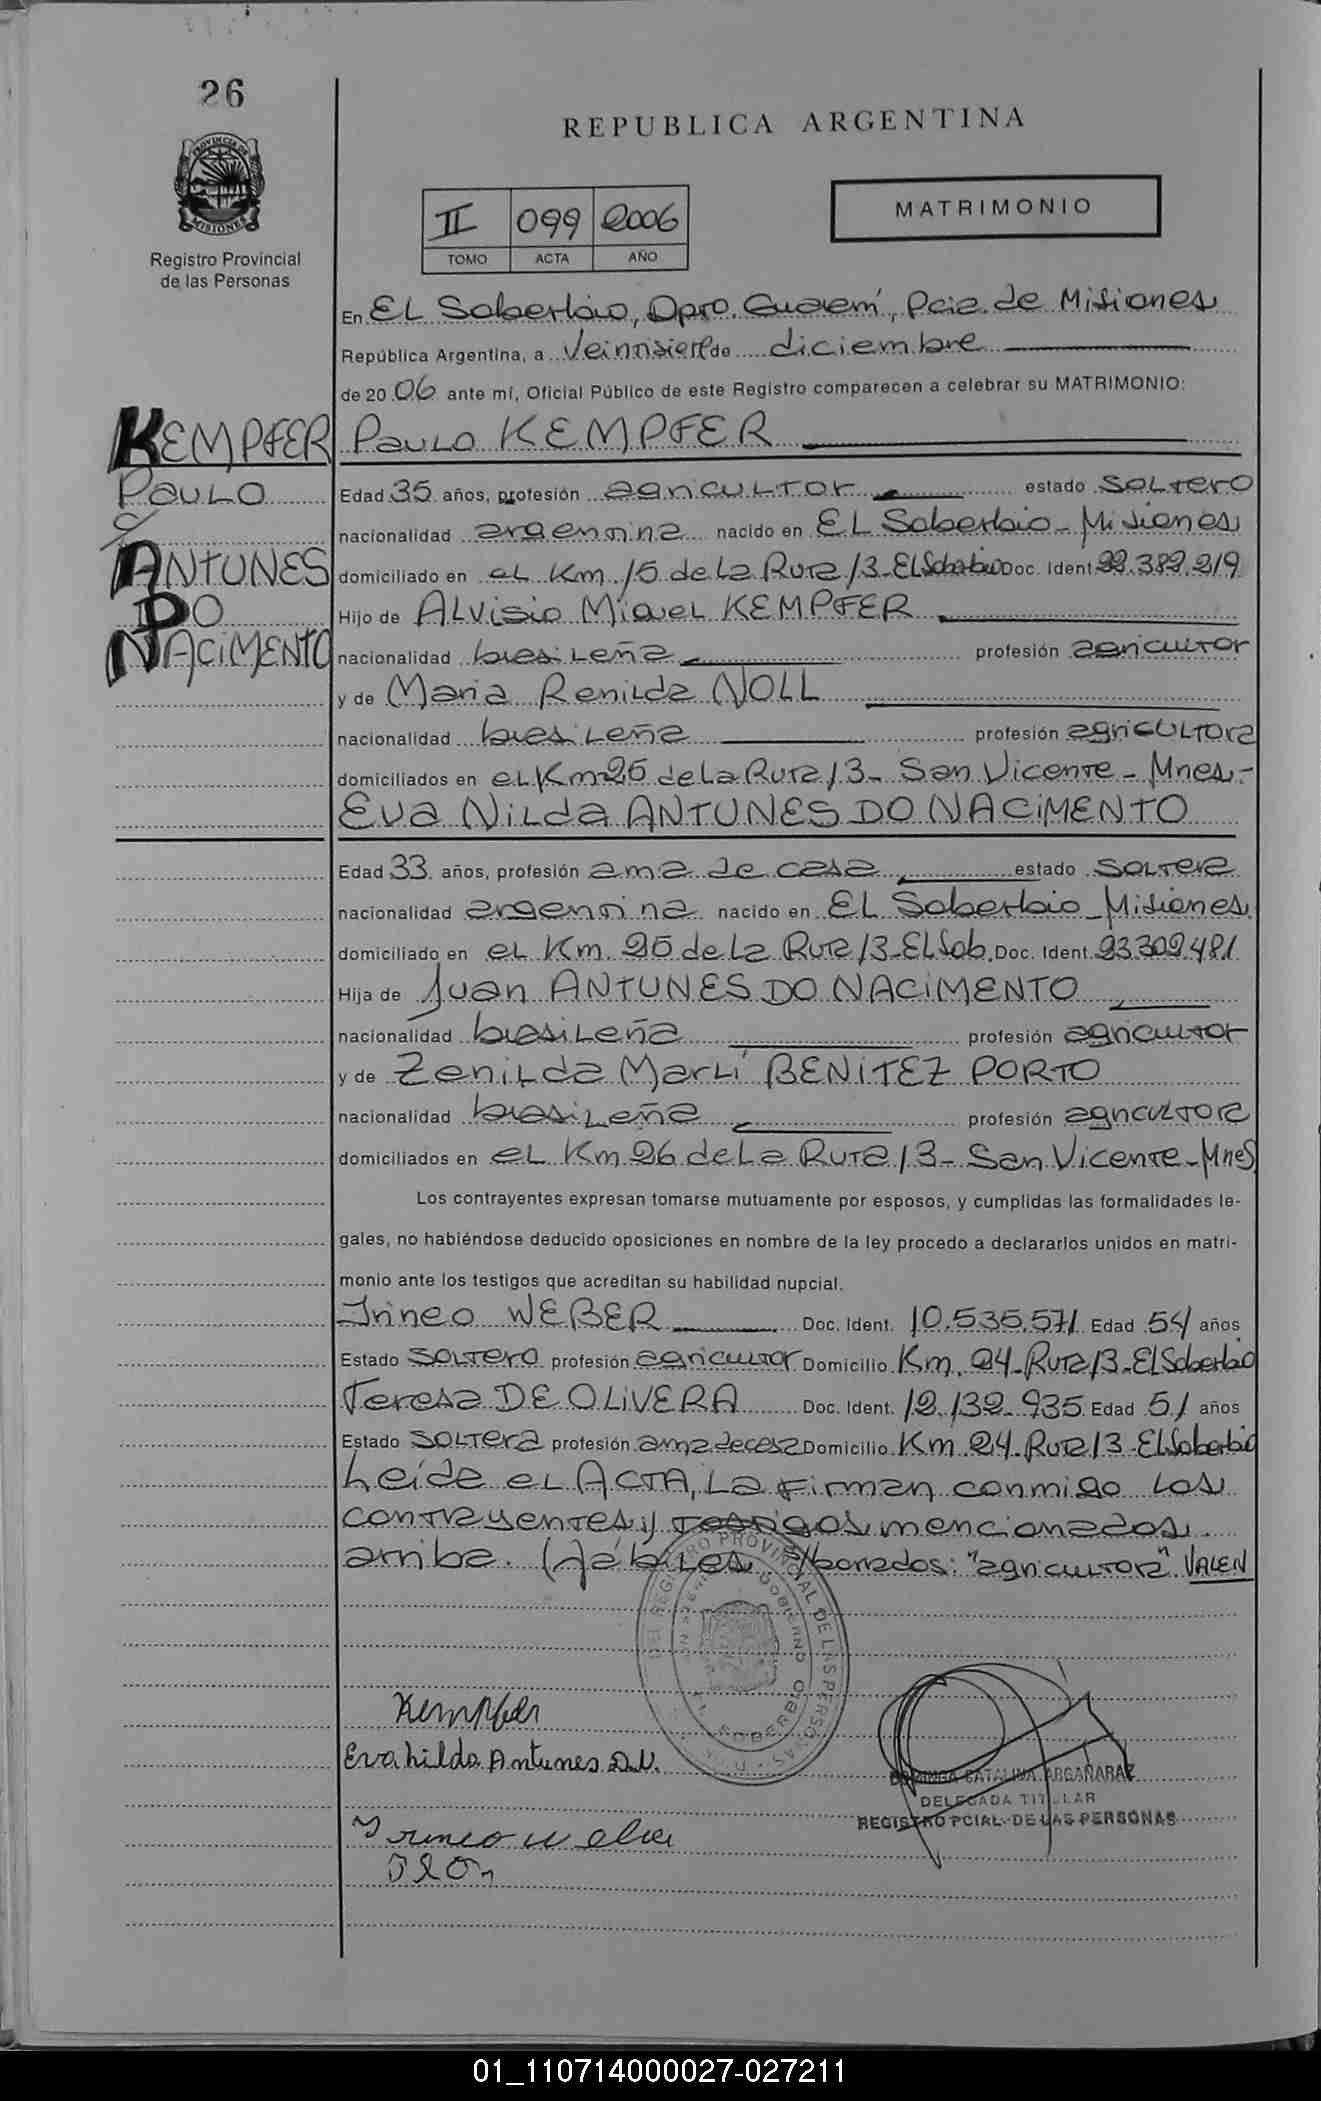 26
REPUBLICA ARGENTINA
PROVINCIA DE MISIONES
Registro Provincial
de las Personas
II 099 2006
TOMO ACTA AÑO
MATRIMONIO
En EL Soberbio, Dpto. Guaraní, Pcia. de Misiones
República Argentina, a Veintisiete de diciembre
de 20 06 ante mí, Oficial Público de este Registro comparecen a celebrar su MATRIMONIO:
KEMPFER
PAULO
c/
ANTUNES
DO
NACIMENTO
Paulo KEMPFER
Edad 35 años, profesión agricultor estado soltero
nacionalidad argentina nacido en EL Soberbio - Misiones
domiciliado en el Km 15 de la Ruta 13 - El Soberbio Doc. Ident. 22.382.219
Hijo de Alvisio Miguel KEMPFER
nacionalidad brasileña profesión agricultor
y de Maria Renilda NOLL
nacionalidad brasileña profesión agricultora
domiciliados en el Km 25 de la Ruta 13 - San Vicente - Mnes.-
Eva Nilda ANTUNES DO NACIMENTO
Edad 33 años, profesión ama de casa estado soltera
nacionalidad argentina nacido en EL Soberbio - Misiones
domiciliado en el Km. 25 de la Ruta 13 - El Sob. Doc. Ident. 23.302.481
Hija de Juan ANTUNES DO NACIMENTO
nacionalidad brasileña profesión agricultor
y de Zenilda Marlí BENITEZ PORTO
nacionalidad brasileña profesión agricultora
domiciliados en el Km 26 de la Ruta 13 - San Vicente - Mnes
Los contrayentes expresan tomarse mutuamente por esposos, y cumplidas las formalidades le-
gales, no habiéndose deducido oposiciones en nombre de la ley procedo a declararlos unidos en matri-
monio ante los testigos que acreditan su habilidad nupcial.
Irineo WEBER Doc. Ident. 10.535.571 Edad 54 años
Estado soltero profesión agricultor Domicilio Km. 24 - Ruta 13 - El Soberbio
Teresa DE OLIVERA Doc. Ident. 12.132.935 Edad 51 años
Estado soltera profesión ama de casa Domicilio Km 24 - Ruta 13 - El Soberbio
Leída el ACTA, la firman conmigo los
contrayentes y testigos mencionados
arriba. Hábiles. s/borrados: "agricultora" VALEN
REGISTRO PROVINCIAL DE LAS PERSONAS
EL SOBERBIO
Kempfer
Eva nilda Antunes D.N.
Irineo Weber
DOMINGA CATALINA ARGAÑARAZ
DELEGADA TITULAR
REGISTRO PCIAL. DE LAS PERSONAS
01_110714000027-027211